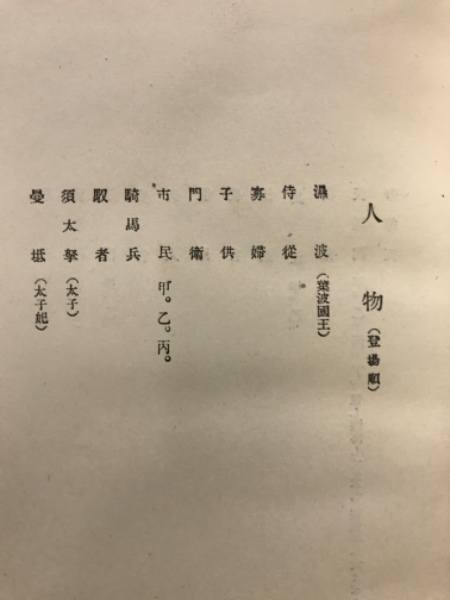 人物（登場順）
濕波（葉波國王）
侍從
寡婦
子供
門衛
市民甲。乙。丙。
騎馬兵
馭者
須太拏（太子）
曼坻（太子妃）